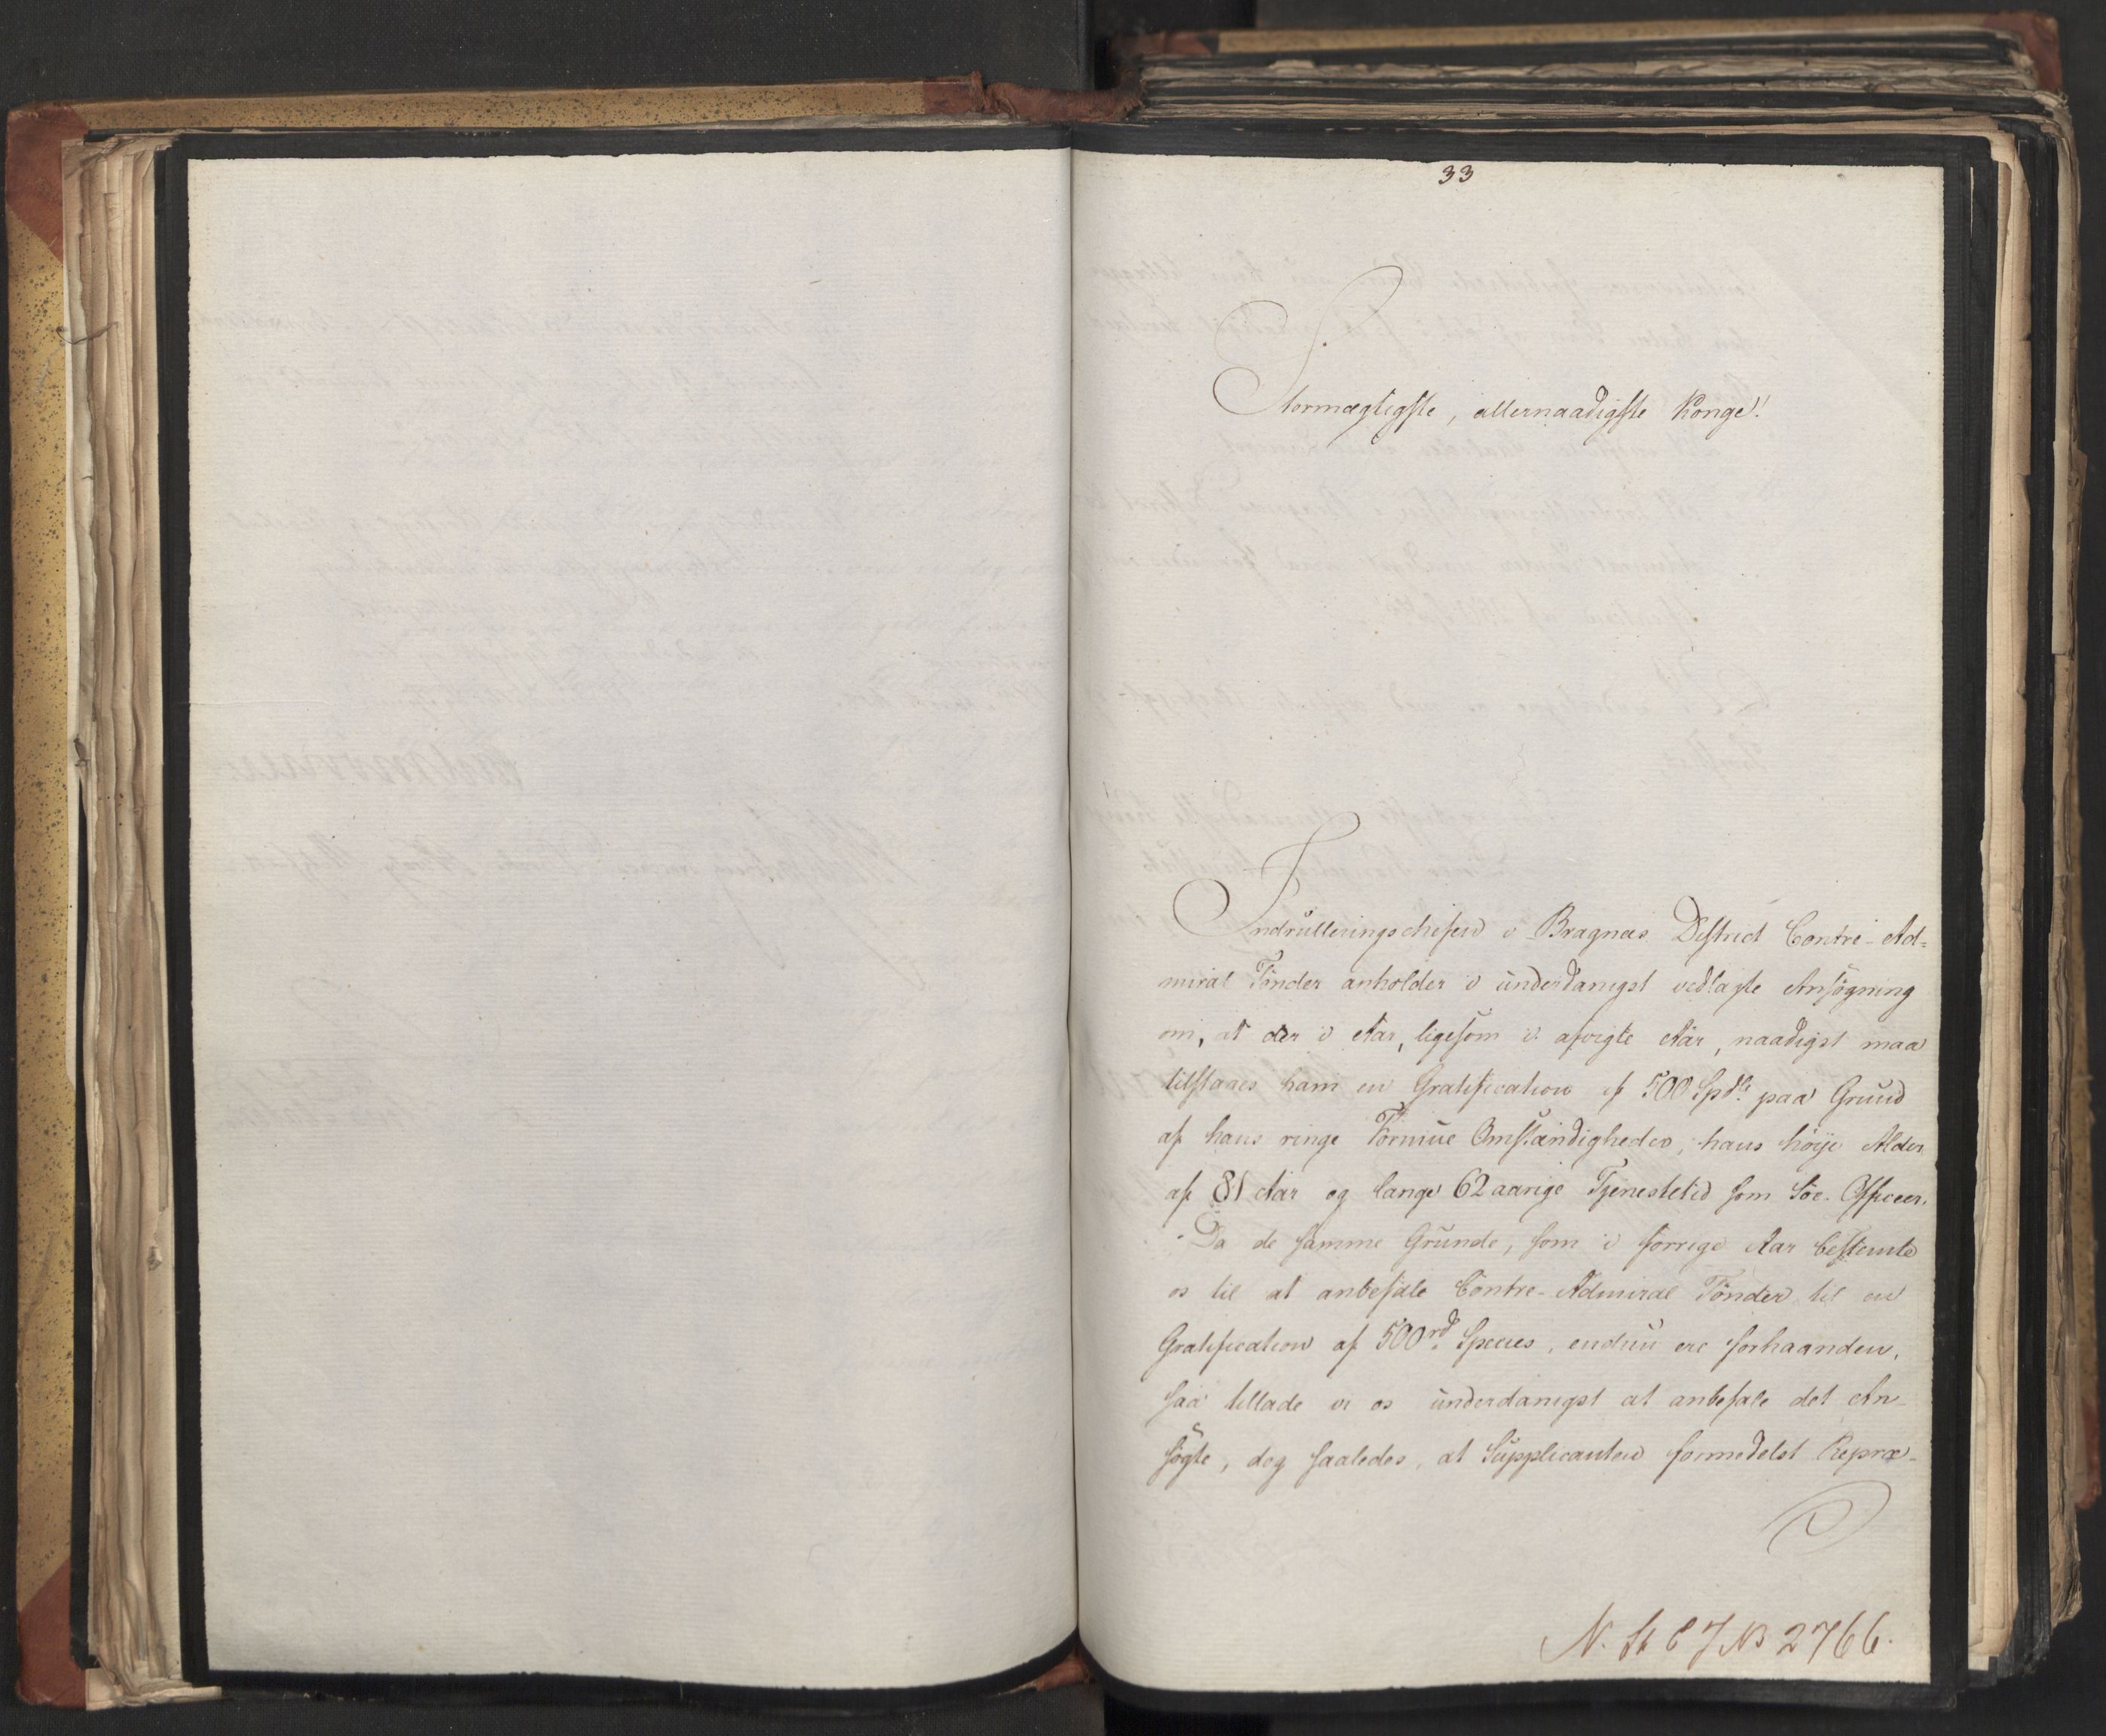 33
Stormægtigste, allernaadigste Konge!
Indrulleringschefen i Bragnæs District Contre-Ad=
miral Tönder anholder i underdanigst vedlagte Ansögning
om, at der i Aar, ligesom i afvigte Aar, naadigst maa
tilstaaes ham en Gratification af 500 Spdlr paa Grund
af hans ringe Formue Omstændigheder, hans höije Alder
af 81 Aar og lange 62 aarige Tjenestetid som Söe-Officeer.
Da de samme Grunde, som i forrige Aar bestemte
os til at anbefale Contre-Admiral Tönder til en
Gratification af 500rd Species, endnu ere forhaanden,
saa tillade vi os underdanigst at anbefale det An-
sögte, dog saaledes, at Supplicanten formedelst Repræ-
N. St C J No 2766.